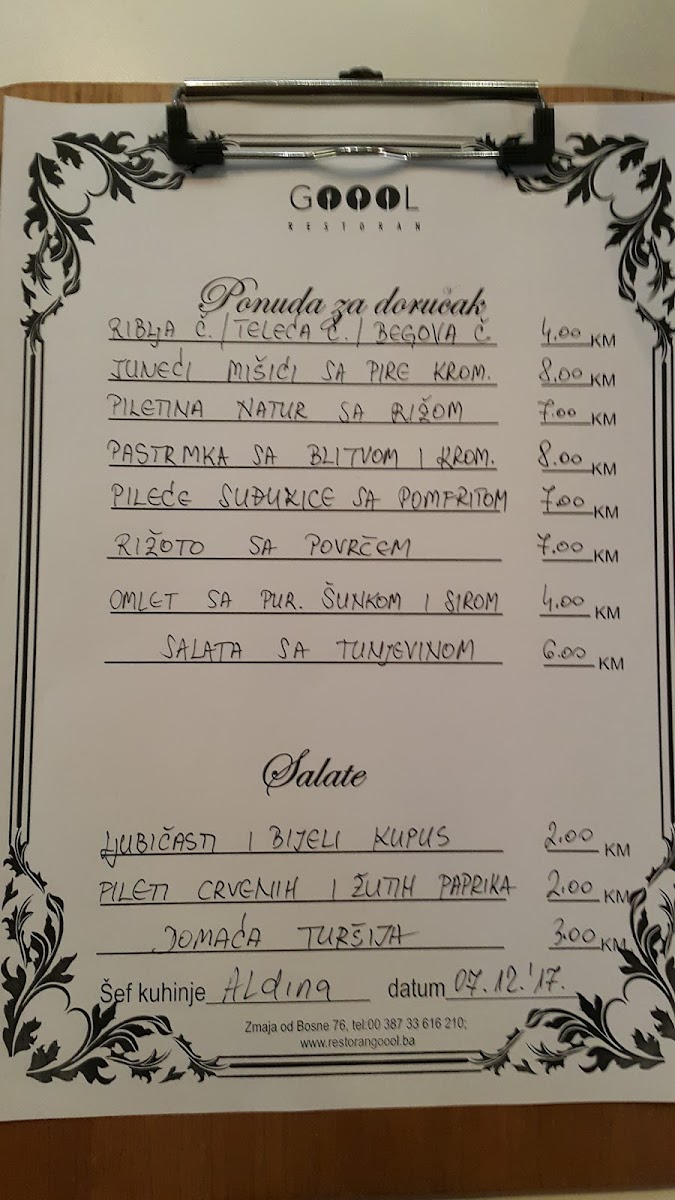 GOOOL
RESTORAN
Ponuda za doručak
RIBLJA Č. / TELEĆA Č. / BEGOVA Č. 4.00 KM
JUNEĆI MIŠIĆI SA PIRE KROM. 8.00 KM
PILETINA NATUR SA RIŽOM 7.00 KM
PASTRMKA SA BLITVOM I KROM. 8.00 KM
PILEĆE SUĐUKICE SA POMFRITOM 7.00 KM
RIŽOTO SA POVRČEM 7.00 KM
OMLET SA PUR. ŠUNKOM I SIROM 4.00 KM
SALATA SA TUNJEVINOM 6.00 KM
Salate
LJUBIČASTI I BIJELI KUPUS 2.00 KM
FILETI CRVENIH I ŽUTIH PAPRIKA 2.00 KM
DOMAĆA TURŠIJA 3.00 KM
Šef kuhinje Aldina datum 07.12.'17.
Zmaja od Bosne 76, tel:00 387 33 616 210;
www.restorangoool.ba